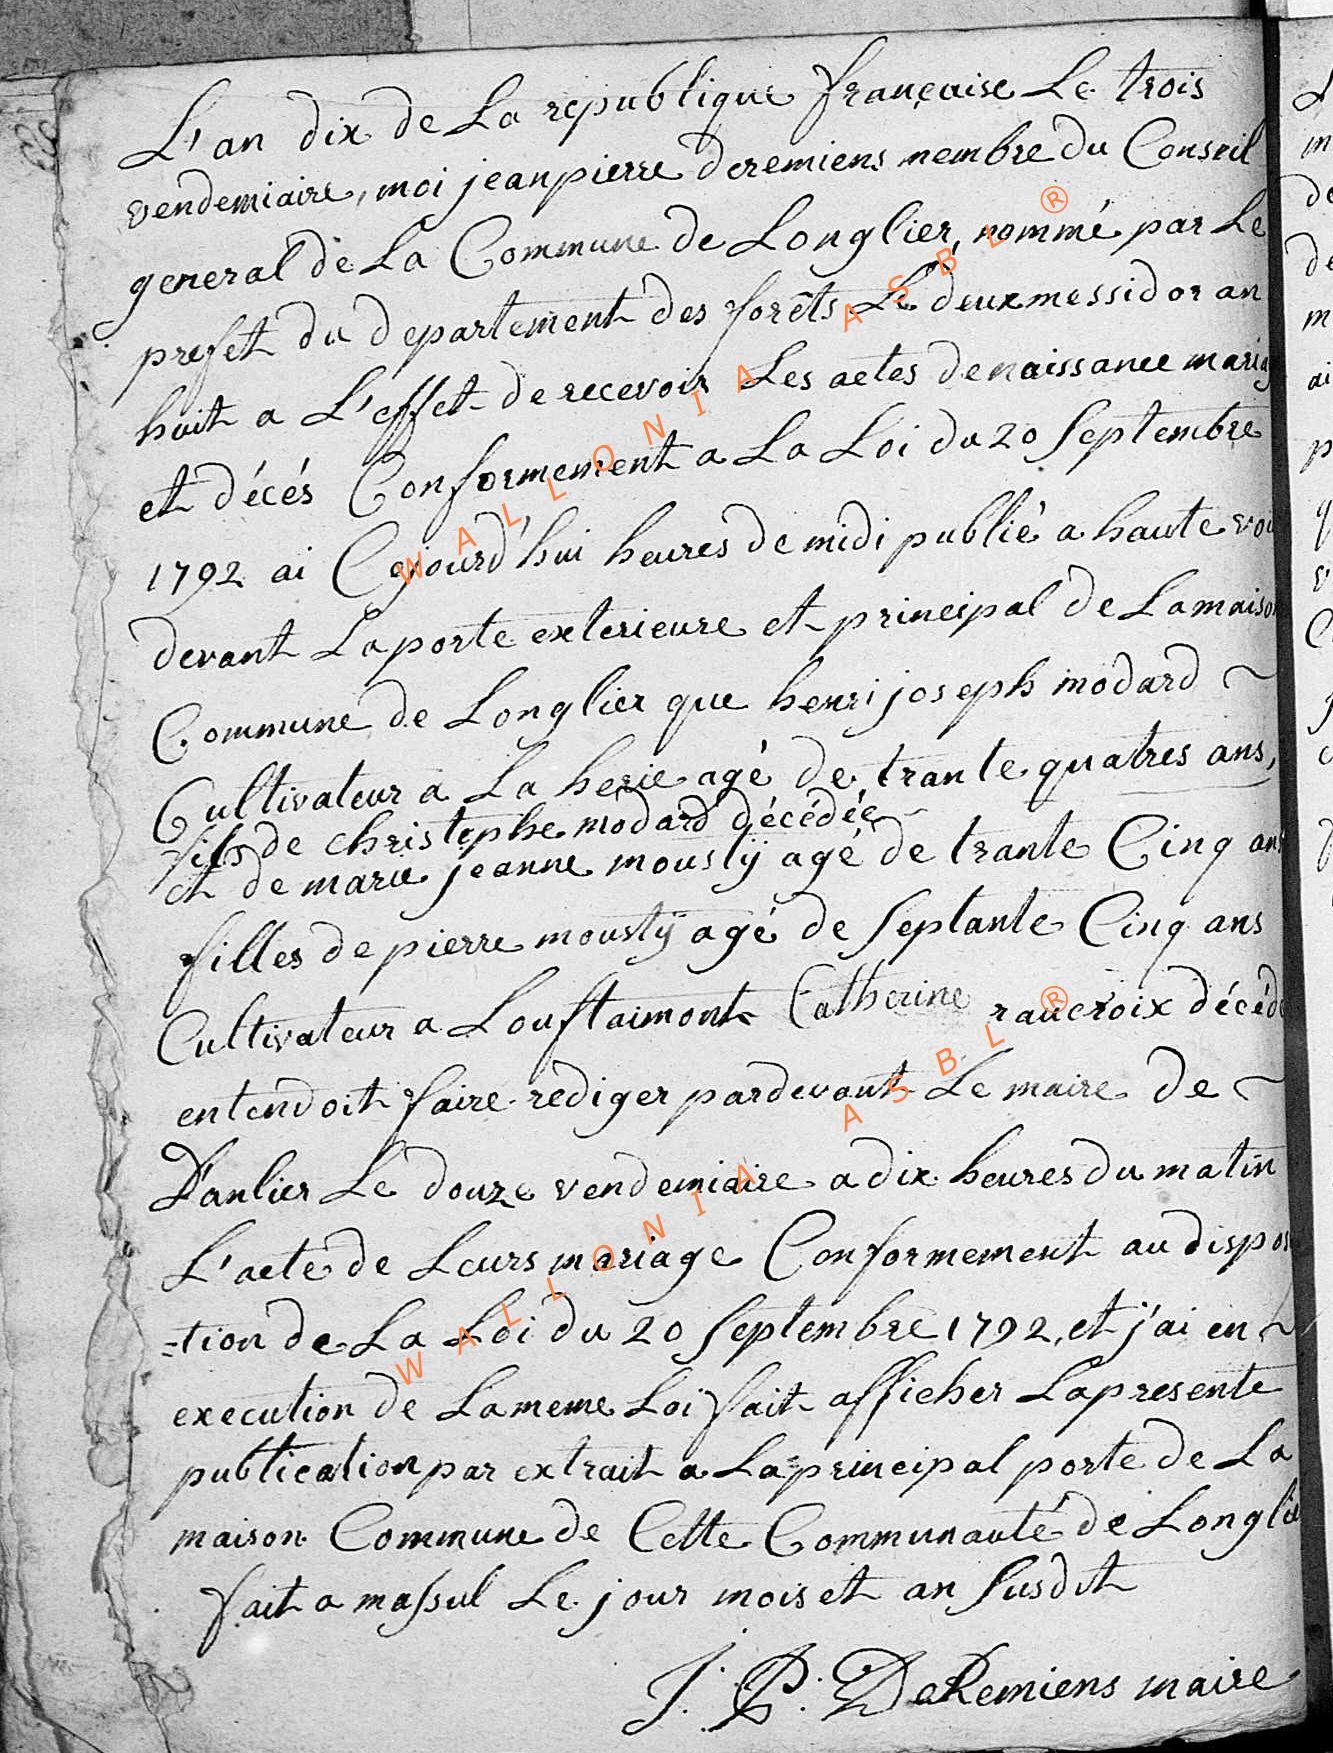 L'an dix de La republique françaises Le trois
vendemiaire, moi jeanpierre deremiens membre du Conseil
general de La Commune de Longlier, nommé par Le
prefet du departement des forêts Le deux messidor an
huit a L'effet de recevoir Les actes de naissance mariag
et décés Conformement a La Loi du 20 Septembre
1792 ai Cejourd'hui heures de midi publié a haute voi
devant Laporte exterieure et principal de Lamaison
Commune de Longlier que henri joseph modard ~
Cultivateur a La herie agé de trante quatres ans,
fils de christophe modard décédée
et de marie jeanne moustÿ agé de trante Cinq ans
filles de pierre moustÿ agé de Septante Cinq ans
Cultivateur a Louftaimont Catherine raucroix décédé
entendoit faire rediger pardevant Le maire de ~
D'anlier Le douze vendemiaire a dix heures du matin
L'acte de Leurs mariage Conformement au dispos
=tion de La Loi du 20 Septembre 1792, et j'ai en ~
execution de Lameme Loi fait afficher Lapresente
publication par extrait a Laprincipal porte de La
maison Commune de Cette Communauté de Longlie
fait a massul Le jour mois et an Susdit
J. P. DeRemiens maire
WALLONIA ASBL ®
WALLONIA ASBL ®